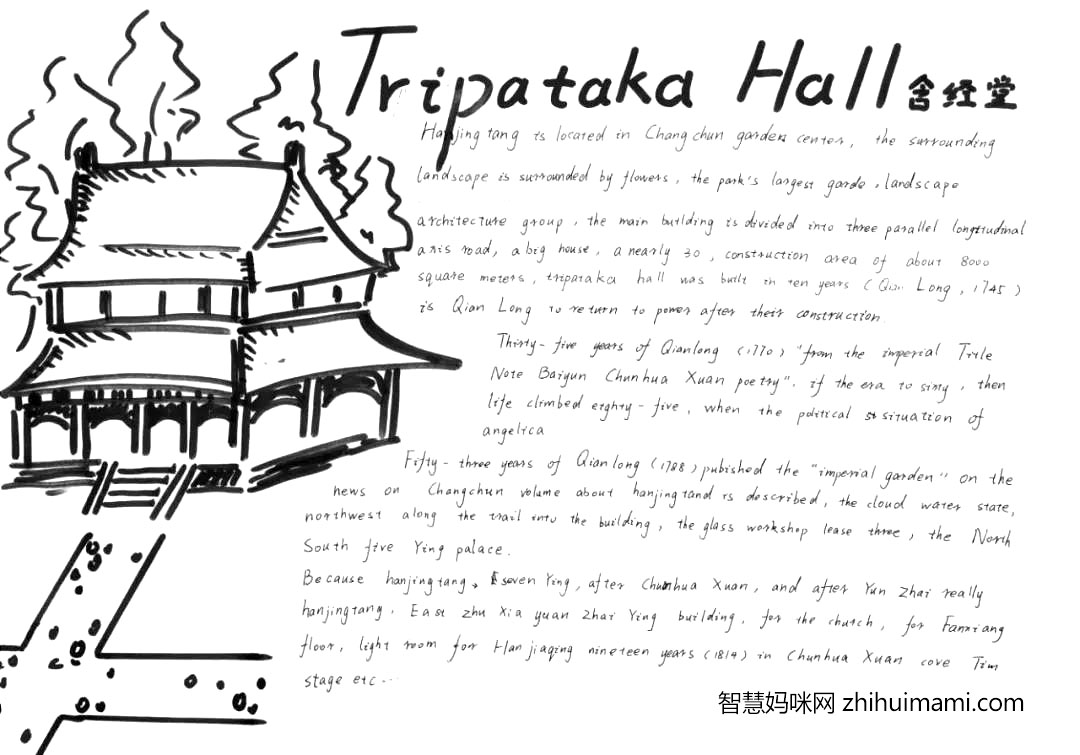 Tripataka Hall 含经堂
Hanjing tang is located in Changchun garden center, the surrounding
landscape is surrounded by flowers, the park's largest garde, landscape
architecture group, the main building is divided into three parallel longitudinal
axis road, a big house, a nearly 30, construction area of about 8000
square meters, tripataka hall was built in ten years (Qian Long, 1745)
is Qian Long to return to power after their construction.
Thirty-five years of Qianlong (1770) "from the imperial Title
Note Baiyun Chunhua Xuan poetry". if the era to sixty, then
life climbed eighty-five, when the political situation of
angelica
Fifty-three years of Qianlong (1788) pubished the "imperial garden" on the
news on Changchun volume about hanjingtand is described, the cloud water state,
northwest along the trail into the building, the glass workshop lease three, the North
South five Ying palace.
Because hanjingtang, seven Ying, after Chunhua Xuan, and after Yun Zhai really
hanjingtang. East zhu Xia yuan Zhai Ying building, for the church, for Fanxiang
floor, light room for Hanjiaqing nineteen years (1814) in Chunhua Xuan cove Tim
stage etc...
智慧妈咪网 zhihuimami.com